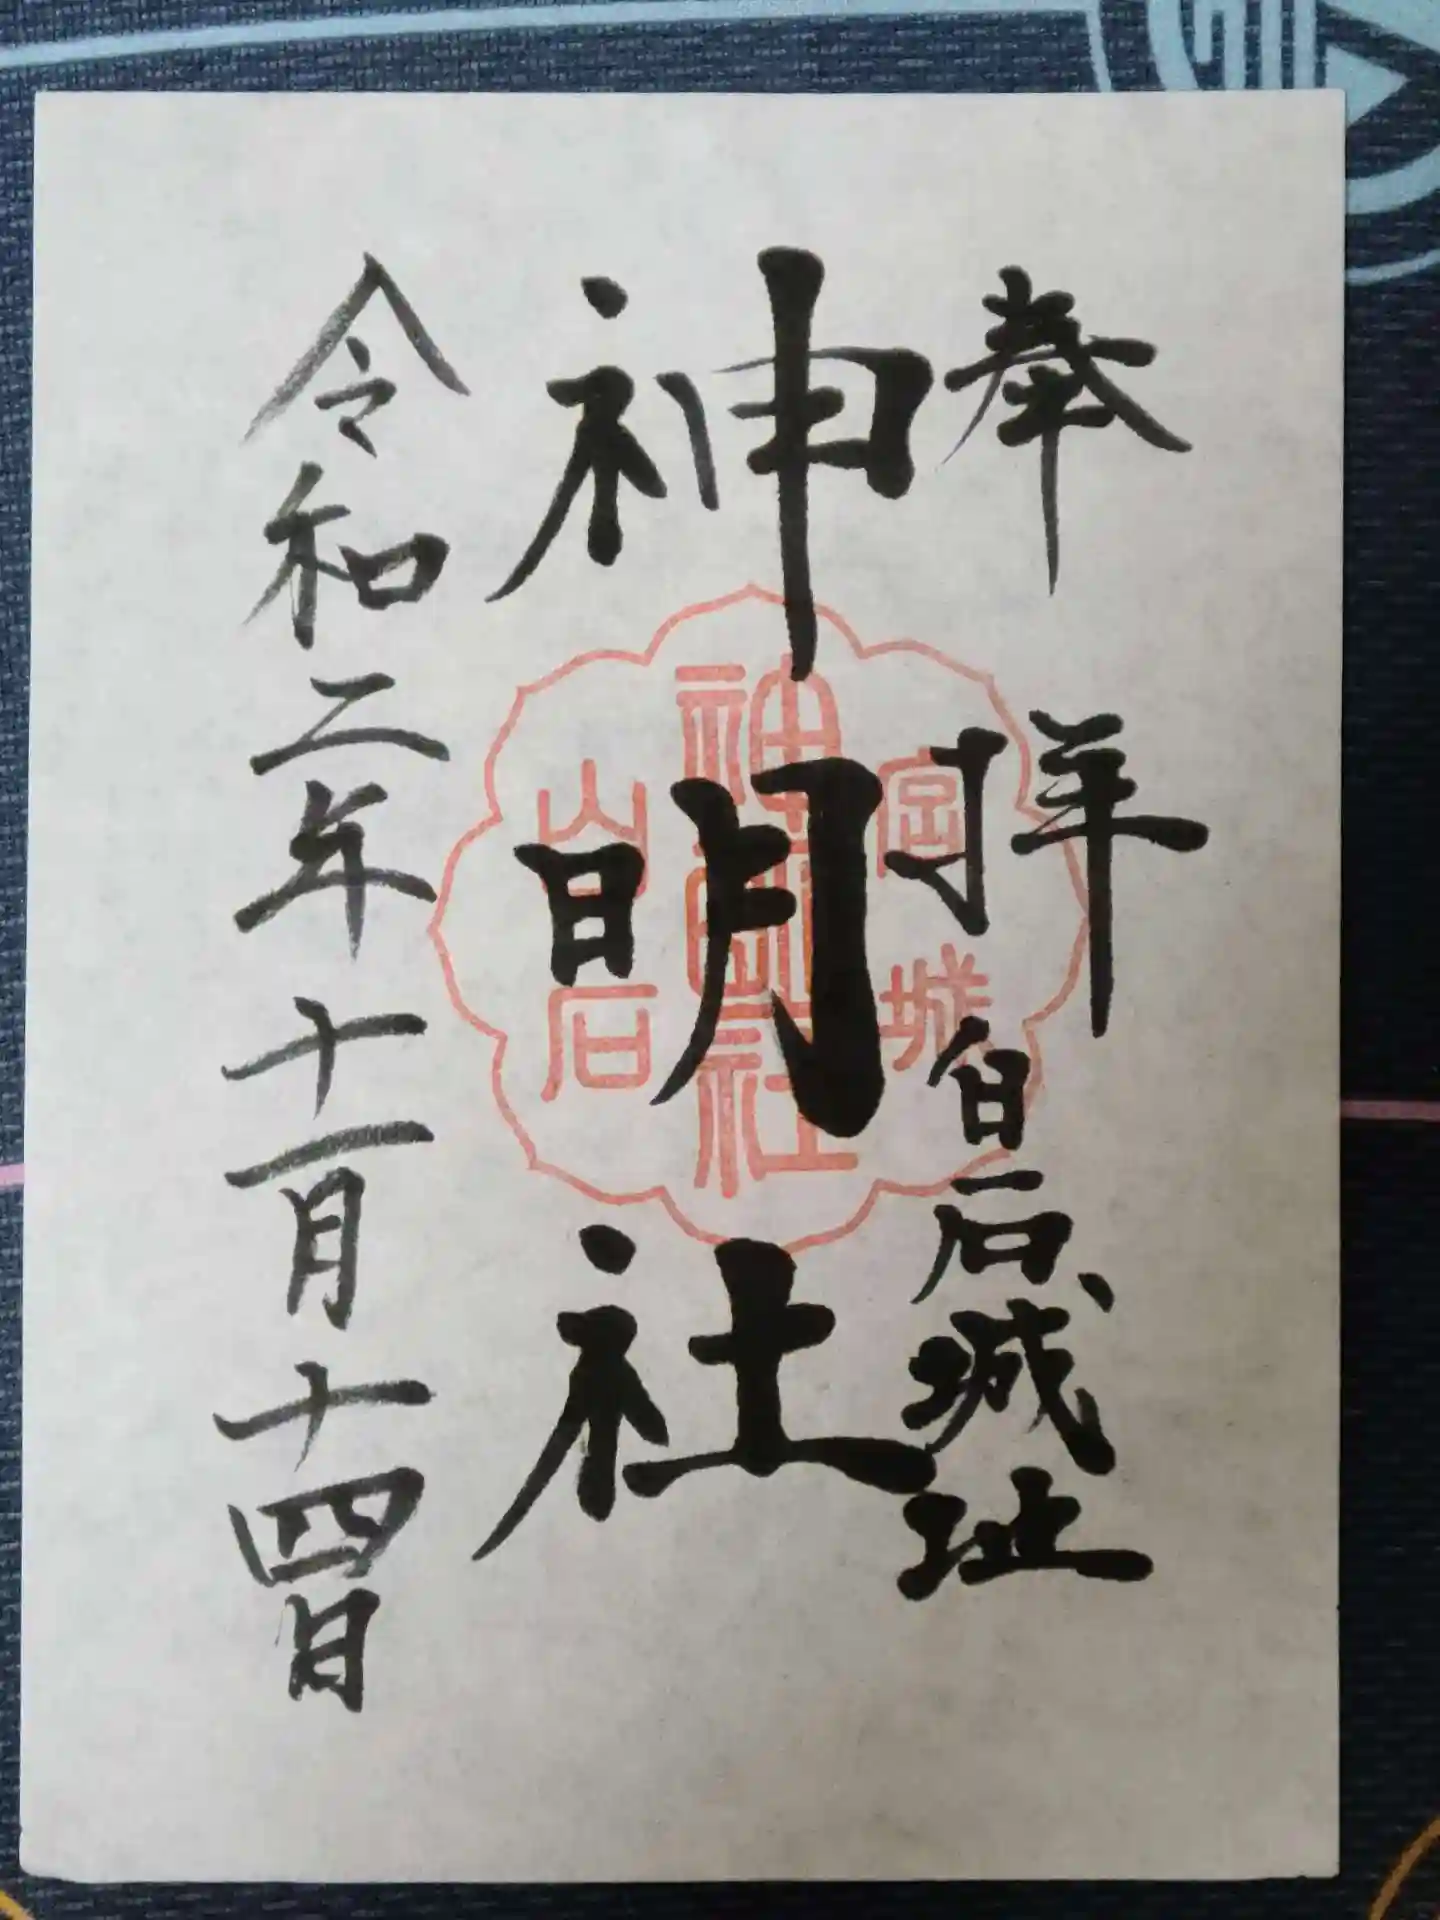 奉拝
白石城址
神明社
令和二年十一月十四日
宮城
神明社
白石